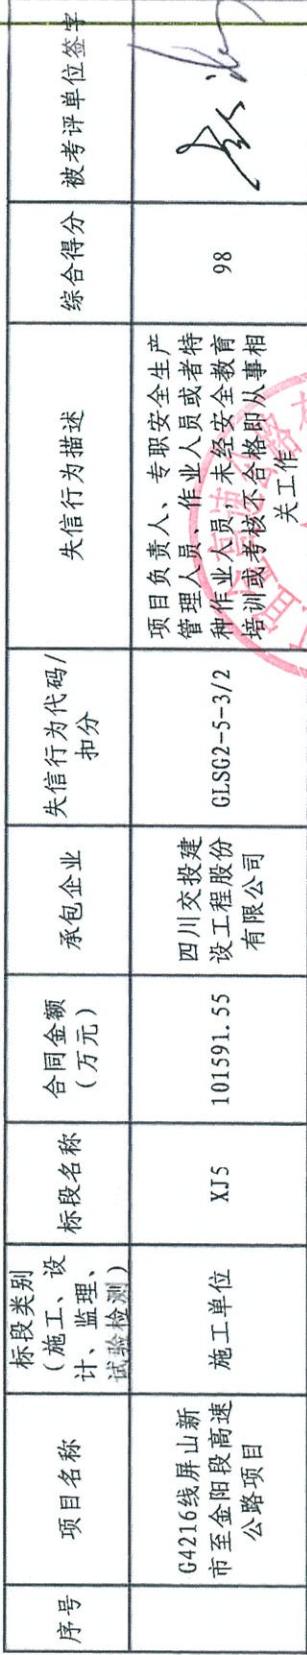 序号
项目名称
标段类别
（施工、设
计、监理、
试验检测）
标段名称
合同金额
（万元）
承包企业
失信行为代码/
扣分
失信行为描述
综合得分
被考评单位签字
G4216线屏山新
市至金阳段高速
公路项目
施工单位
XJ5
101591.55
四川交投建
设工程股份
有限公司
GLSG2-5-3/2
项目负责人、专职安全生产
管理人员、作业人员或者特
种作业人员，未经安全教育
培训或考核不合格即从事相
关工作
98